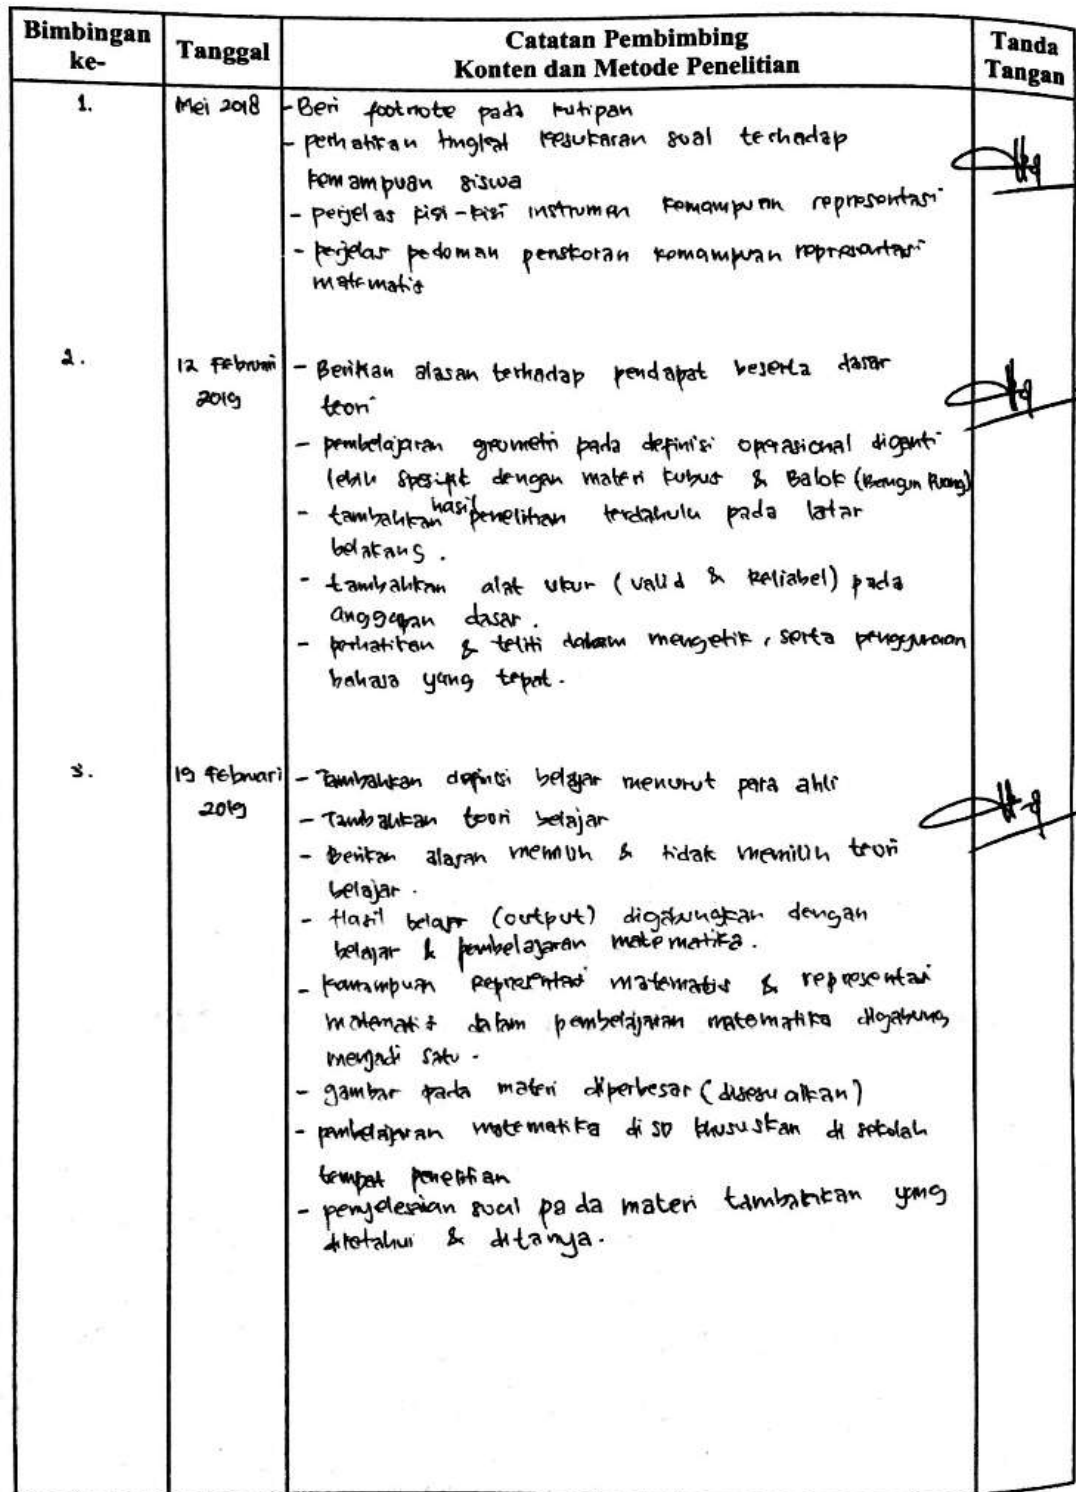 Bimbingan ke- Tanggal Catatan Pembimbing Konten dan Metode Penelitian Tanda Tangan
1. Mei 2018 - Beri footnote pada kutipan
- perhatikan tingkat kesukaran soal terhadap
kemampuan siswa
- perjelas kisi-kisi instrumen kemampuan representasi
- perjelas pedoman penskoran kemampuan representasi
matematis
2. 12 Februari - Berikan alasan terhadap pendapat beserta dasar
2019 teori
- pembelajaran geometri pada definisi operasional diganti
lebih spesifik dengan materi kubus & Balok (Bangun Ruang)
- tambahkan hasil penelitian terdahulu pada latar
belakang.
- tambahkan alat ukur (valid & Reliabel) pada
anggapan dasar.
- perhatikan & teliti dalam mengetik, serta penggunaan
bahasa yang tepat.
3. 19 Februari - Tambahkan definisi belajar menurut para ahli
2019 - Tambahkan teori belajar
- Berikan alasan memilih & tidak memilih teori
belajar.
- Hasil belajar (output) digabungkan dengan
belajar & pembelajaran matematika.
- kemampuan Representasi matematis & representasi
matematis dalam pembelajaran matematika digabung
menjadi satu.
- gambar pada materi diperbesar (disesuaikan)
- pembelajaran matematika di SD khususkan di sekolah
tempat penelitian
- penyelesaian soal pada materi tambahkan yang
diketahui & ditanya.